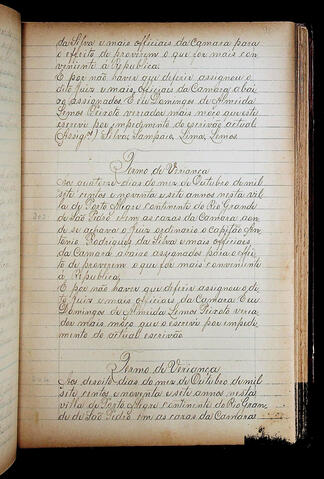 da Silva e mais officiais da Camara para
o efeito de proverem o que for mais con
veniente á Republica.
E por não haver que diferir assignou o
dito Juiz e mais officiais da Camara abai
xo assignados. E eu Domingos de Almeida
Lemos Peixoto vereador mais moço que este
escrevi por impedimento do escrivão actual
(Assigs.) Silva, Sampaio, Lima, Lemos.
Termo de Veriança
Aos quatorze dias do mez de Outubro de mil
sete centos e noventa e sete annos nesta vil
la de Porto Alegre continente do Rio Grande
de São Pedro, e em as cazas da Camara aon
de se achava o Juiz ordinario o Capitão An
tonio Rodrigues da Silva e mais officiais
da Camara abaixo assignados para o efei
to de proverem o que for mais conveniente
á Republica.
E por não haver que diferir assignou o di
to Juiz e mais officiais da Camara. E eu
Domingos de Almeida Lemos Peixoto verea
dor mais moço que o escrevi por impedi
mento do actual escrivão.
Termo de Veriança
Aos desoito dias do mez de Outubro de mil
sete centos e noventa e sete annos nesta
villa de Porto Alegre continente do Rio Gran
de de São Pedro, em as cazas da Camara